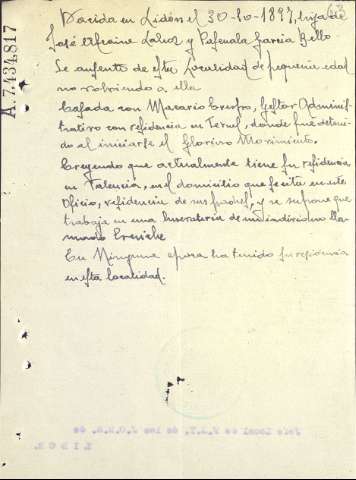 A.7.434.817
Nacida en Lidón el 30-10-1897, hija de
José Lahoz y Pascuala Garcia Bello
Se ausento de esta Localidad de pequeña edad
no volviendo a ella
Casada con Macario Crespo, Gestor Adminis
trativo con residencia en Teruel, donde fue deteni
do al iniciarse el Glorioso Movimiento.
Creyendo que actualmente tiene su residencia
en Valencia, en el domicilio que se cita en este
Oficio, residencia de sus padres, y se supone que
trabaja en una de un individuo lla
mado
En Ninguna epoca ha tenido su residencia
en esta localidad.
Jefe Local de F.E.T. de las J.O.N.S. de
LIDON